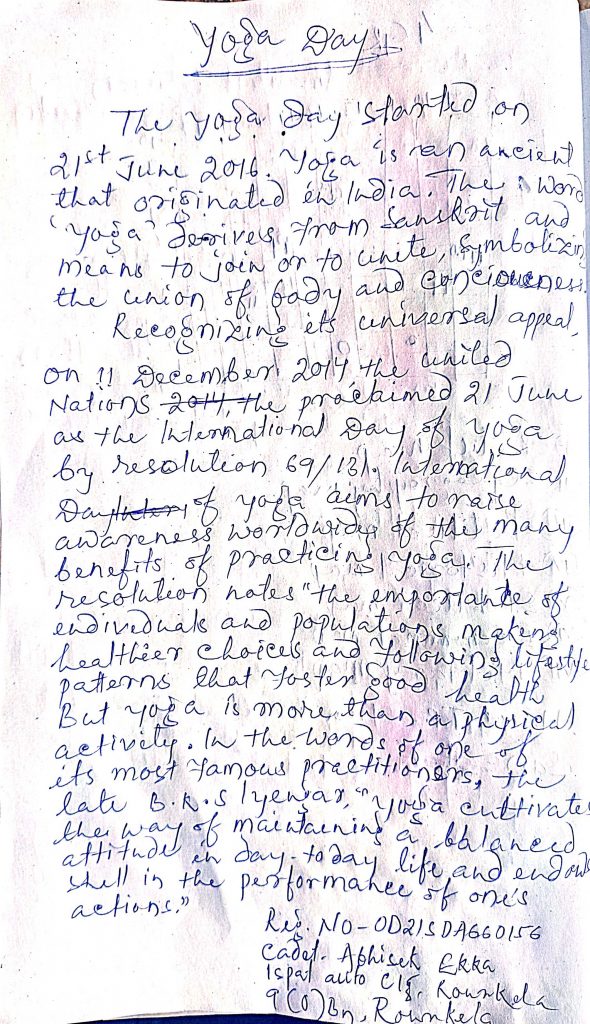 Yoga Day
The Yoga Day started on
21st June 2016. Yoga is an ancient
that originated in India. The word
'Yoga' derives from Sanskrit and
means to join or to unite, symbolizing
the union of body and conciousness.
Recognizing its universal appeal,
on 11 December 2014 the united
Nations 2014, the proclaimed 21 June
as the International Day of Yoga
by resolution 69/131. International
Day of yoga aims to raise
awareness worldwide of the many
benefits of practicing yoga. The
resolution notes "the importance of
endividuals and populations making
healthier choices and following lifestyle
patterns that foster good health
But yoga is more than a physical
activety. In the words of one of
its most famous practitioners, the
late B.K.S Iyengar, "Yoga cultivates
the way of maintaining a balanced
attitude in day-today life and endows
shell in the performance of one's
actions."
Reg. NO-OD21SDA660156
Cadet. Abhisek Ekka
Ispat auto Clg. Rournkela
9(O)Bn, Rournkela